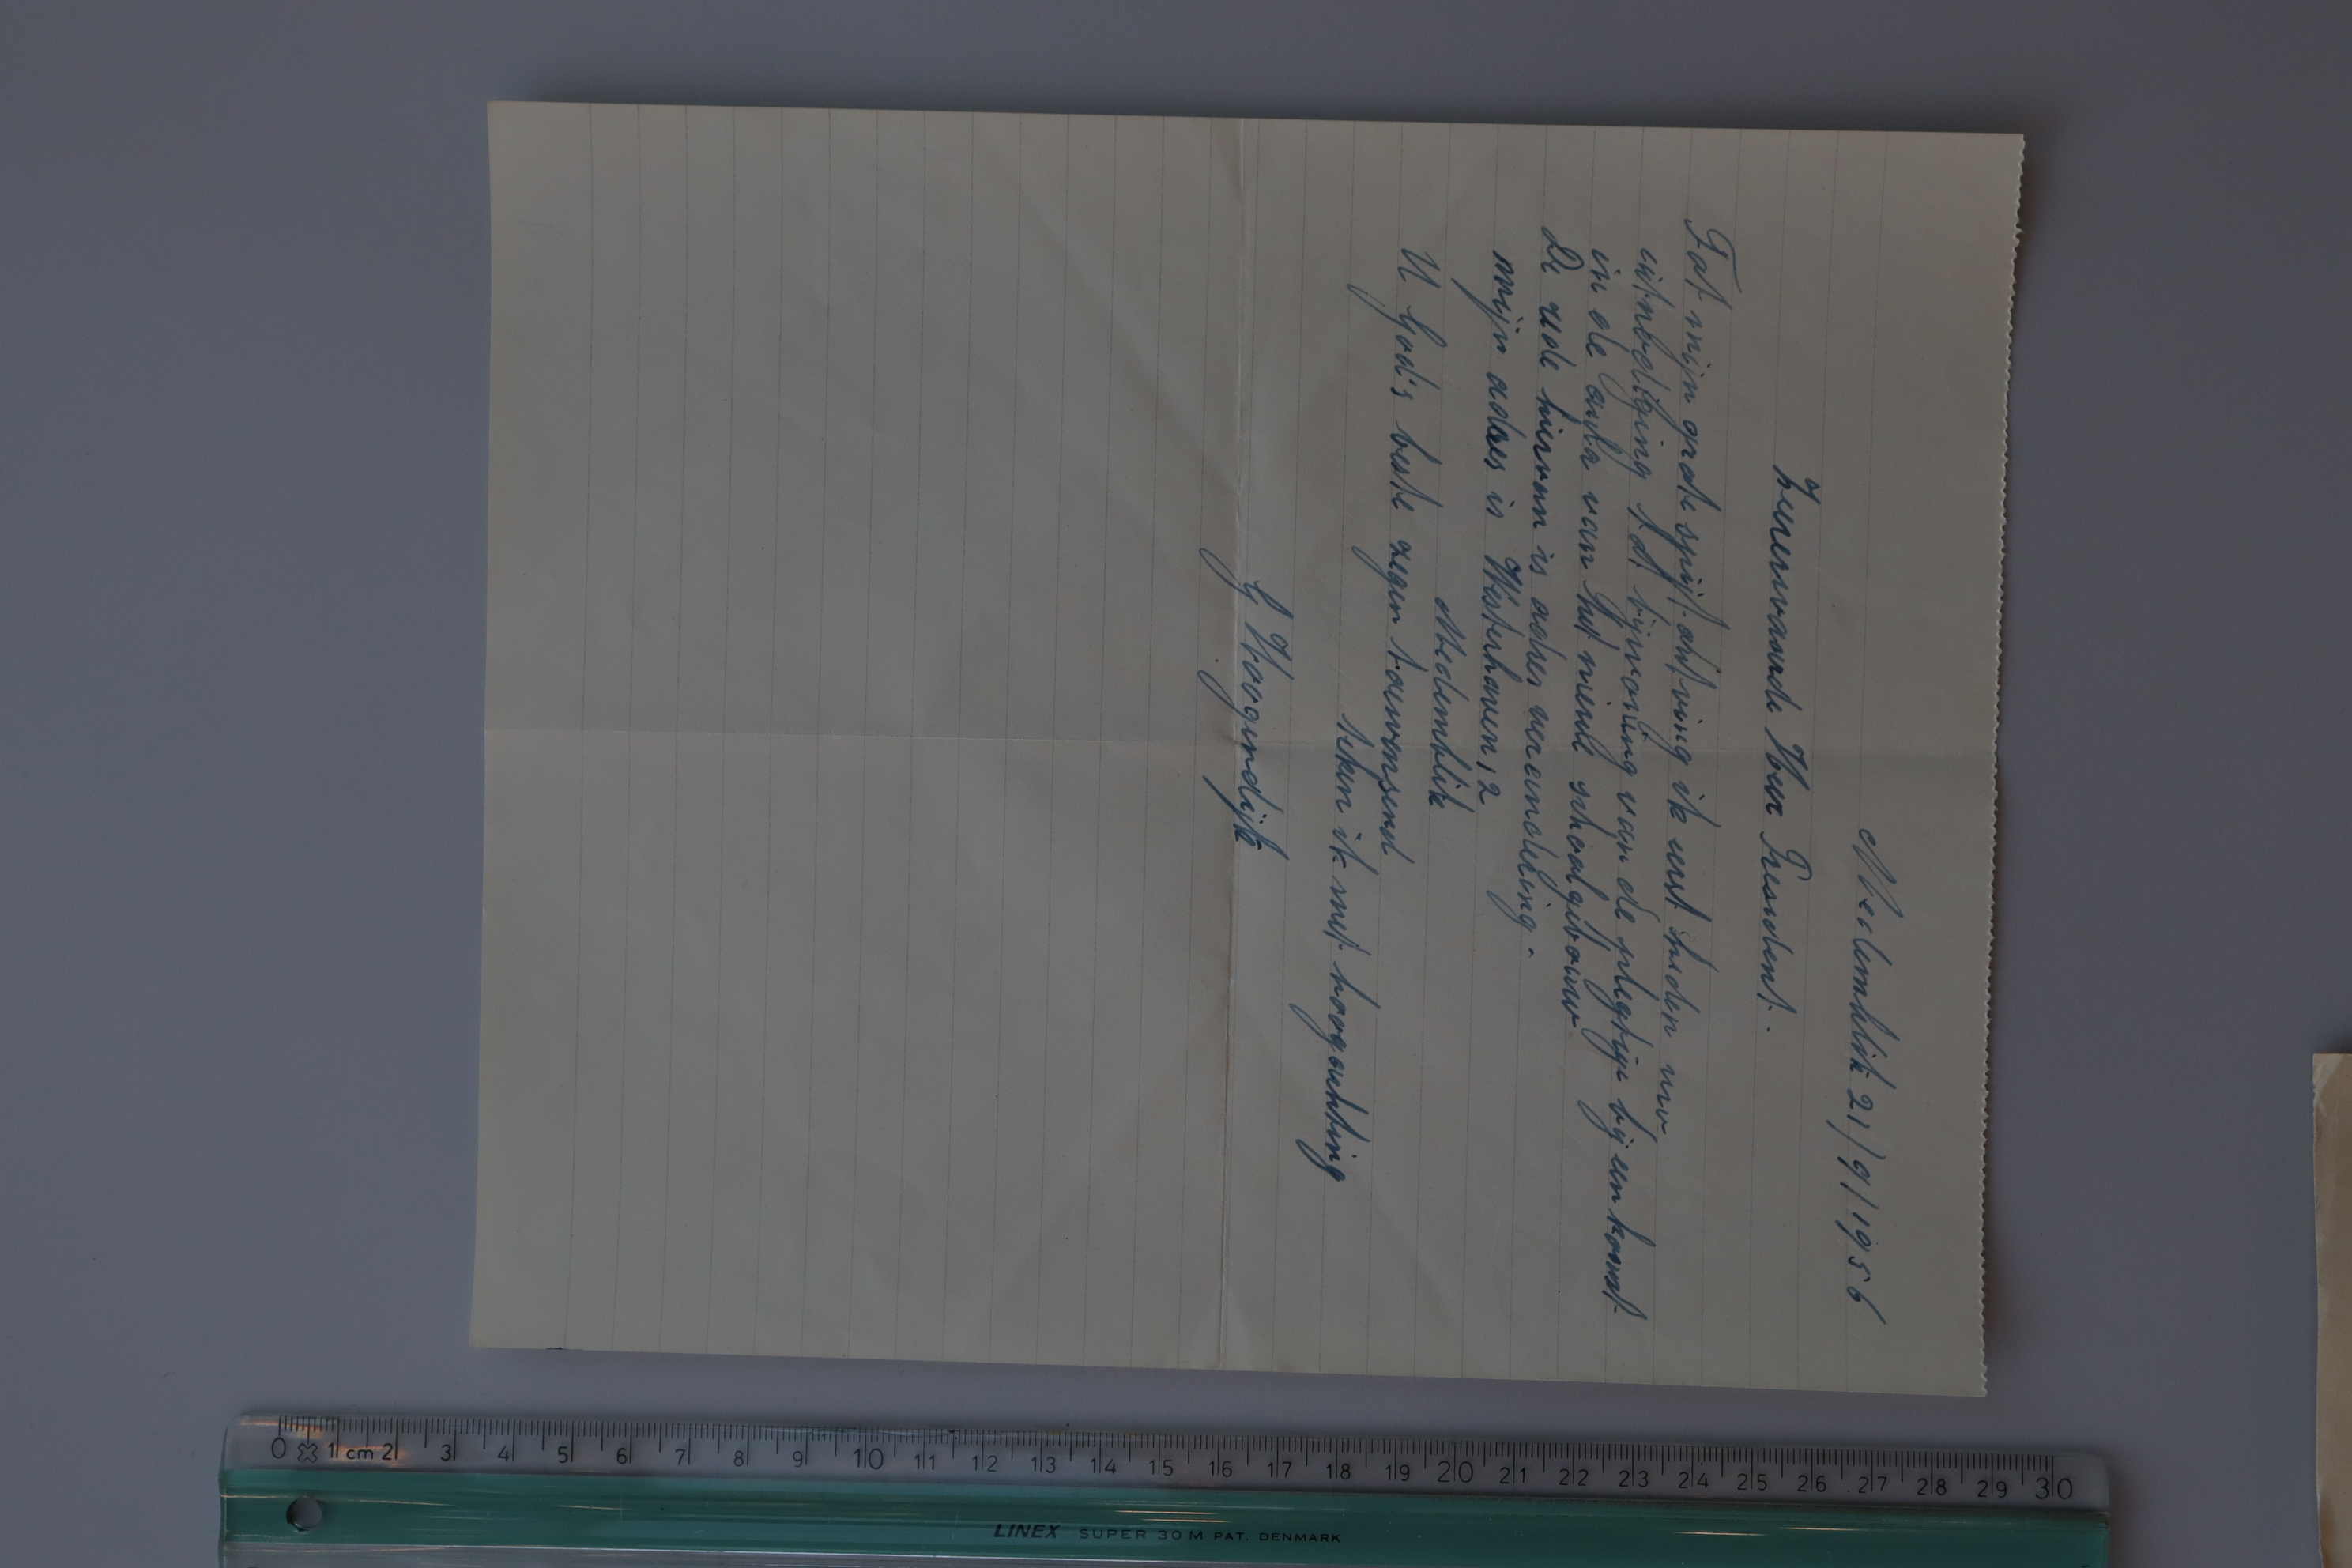 Medemblik 21/9/1956
Zeereerwaarde Heer President.
Tot mijn grote spijt ontving ik eerst heden uw
uitnodiging t.d. bijwoning van de plegtige bijeenkomst
in de aula van het nieuwe schoolgebouw
De rede hiervan is adres verandering.
mijn adres is Westerhaven, 2
Medemblik
U God's beste zegen toewensend
teken ik met hoogachting
G Hoogendijk
0 1 cm 2 3 4 5 6 7 8 9 10 11 12 13 14 15 16 17 18 19 20 21 22 23 24 25 26 27 28 29 30
LINEX SUPER 30 M PAT. DENMARK